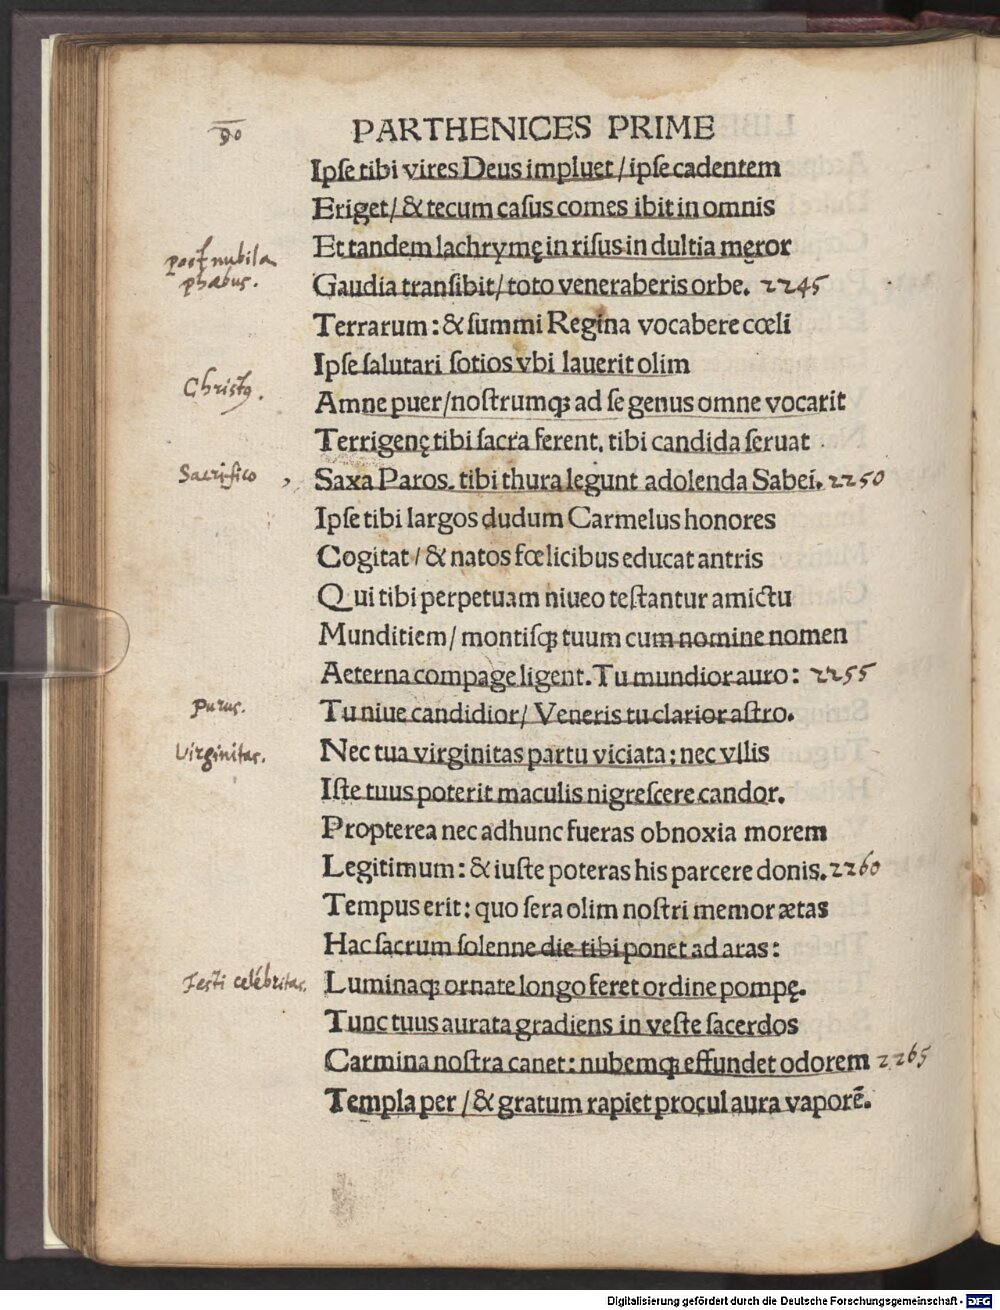 90
PARTHENICES PRIME
Ipse tibi vires Deus impluet / ipse cadentem
Eriget / & tecum casus comes ibit in omnis
Et tandem lachrymę in risus in dultia męror
post nubila
phœbus.
Gaudia transibit / toto veneraberis orbe. 2245
Terrarum : & summi Regina vocabere cœli
Ipse salutari sotios vbi lauerit olim
Christꝰ.
Amne puer / nostrumqꝫ ad se genus omne vocarit
Terrigenę tibi sacra ferent. tibi candida seruat
Sacrifico
Saxa Paros. tibi thura legunt adolenda Sabei. 2250
Ipse tibi largos dudum Carmelus honores
Cogitat / & natos fœlicibus educat antris
Qui tibi perpetuam niueo testantur amictu
Munditiem / montisqꝫ tuum cum nomine nomen
Aeterna compage ligent. Tu mundior auro : 2255
purus.
Tu niue candidior / Veneris tu clarior astro.
Virginitas.
Nec tua virginitas partu viciata : nec vllis
Iste tuus poterit maculis nigrescere candor.
Propterea nec adhunc fueras obnoxia morem
Legitimum : & iuste poteras his parcere donis. 2260
Tempus erit : quo sera olim nostri memor ætas
Hac sacrum solenne die tibi ponet ad aras :
Festi celébritas.
Luminaqꝫ ornate longo feret ordine pompę.
Tunc tuus aurata gradiens in veste sacerdos
Carmina nostra canet : nubemqꝫ effundet odorem 2265
Templa per / & gratum rapiet procul aura vaporē.
Digitalisierung gefördert durch die Deutsche Forschungsgemeinschaft - DFG